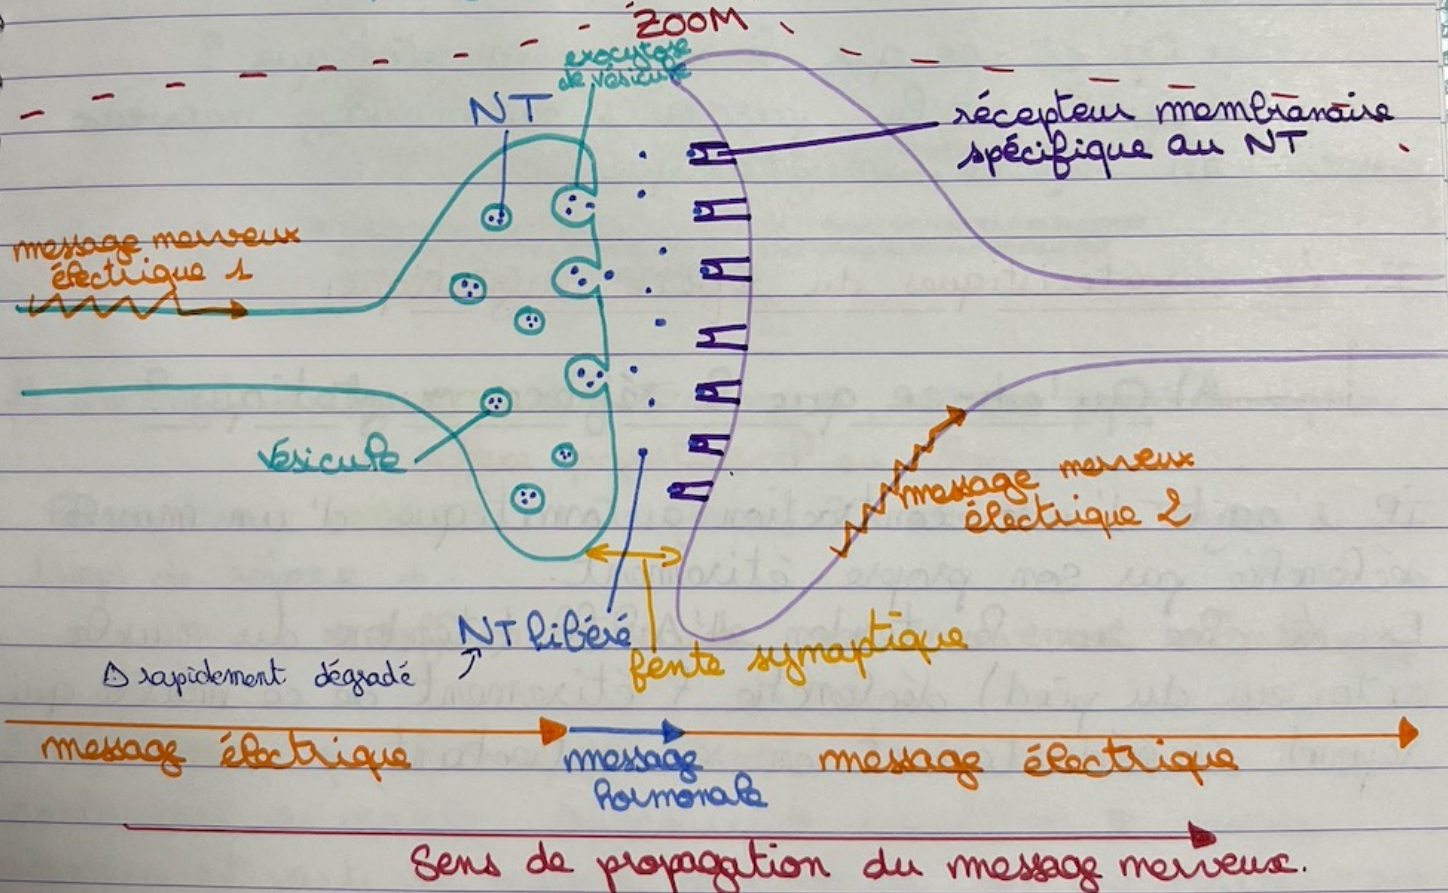 ZOOM
exocytose
de vésicule
NT
récepteur membranaire
spécifique au NT
message nerveux
électrique 1
vésicule
message nerveux
électrique 2
NT libéré
fente synaptique
⚠ rapidement dégradé
message électrique
message
hormonale
message électrique
Sens de propagation du message nerveux.